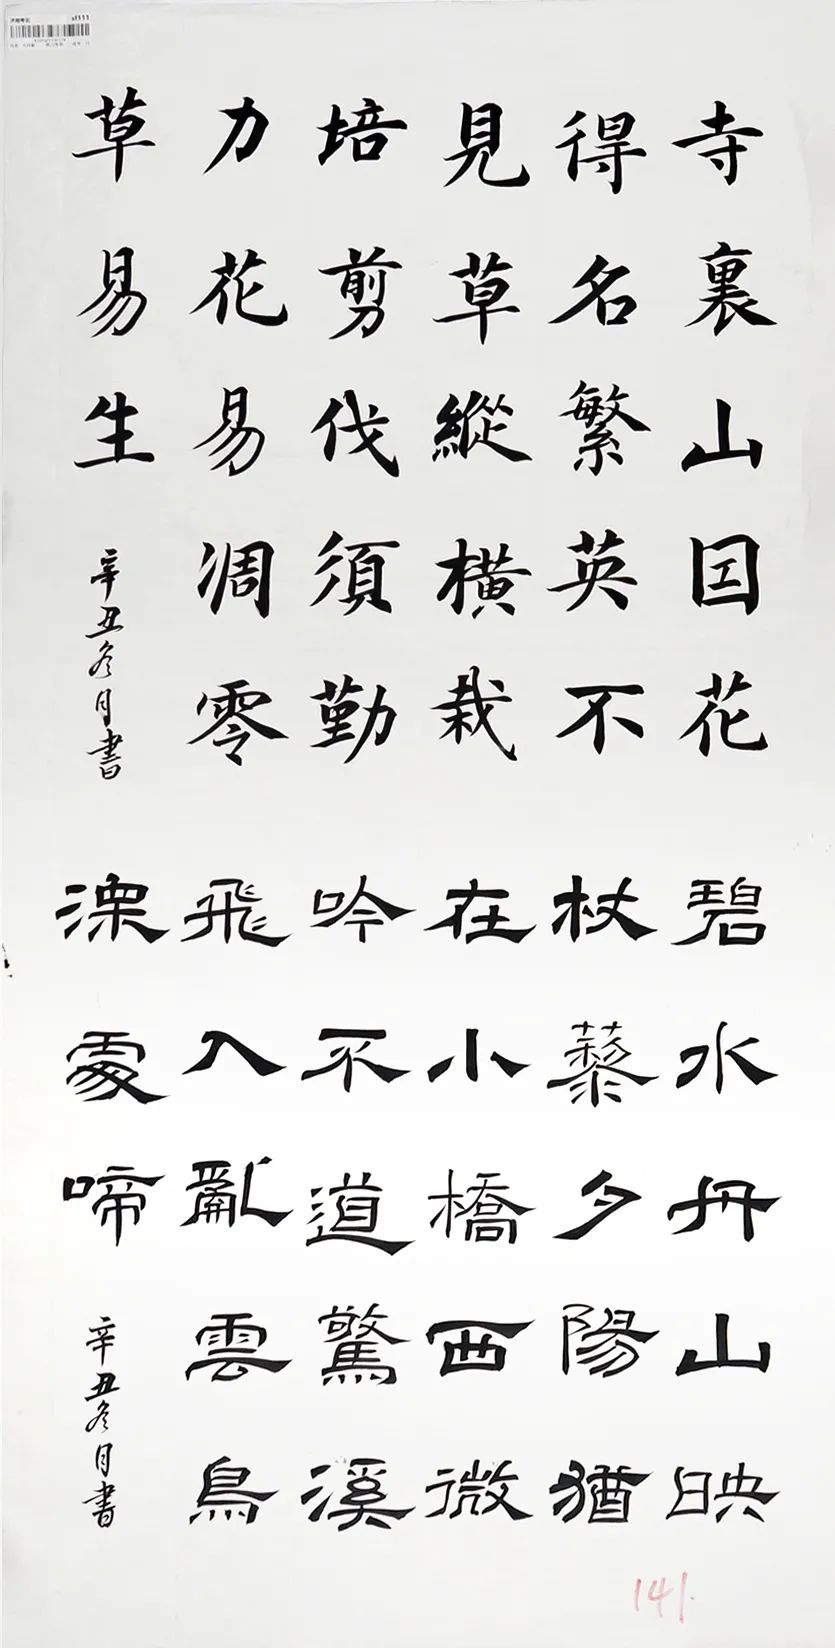 寺裏山因花
得名繁英不
見草縱橫栽
培剪伐須勤
力花易凋零
草易生
辛丑冬月書
碧水丹山映
杖藜夕陽猶
在小橋西微
吟不道驚溪
鳥飛入亂雲
深處啼
辛丑冬月書
141.
sf111